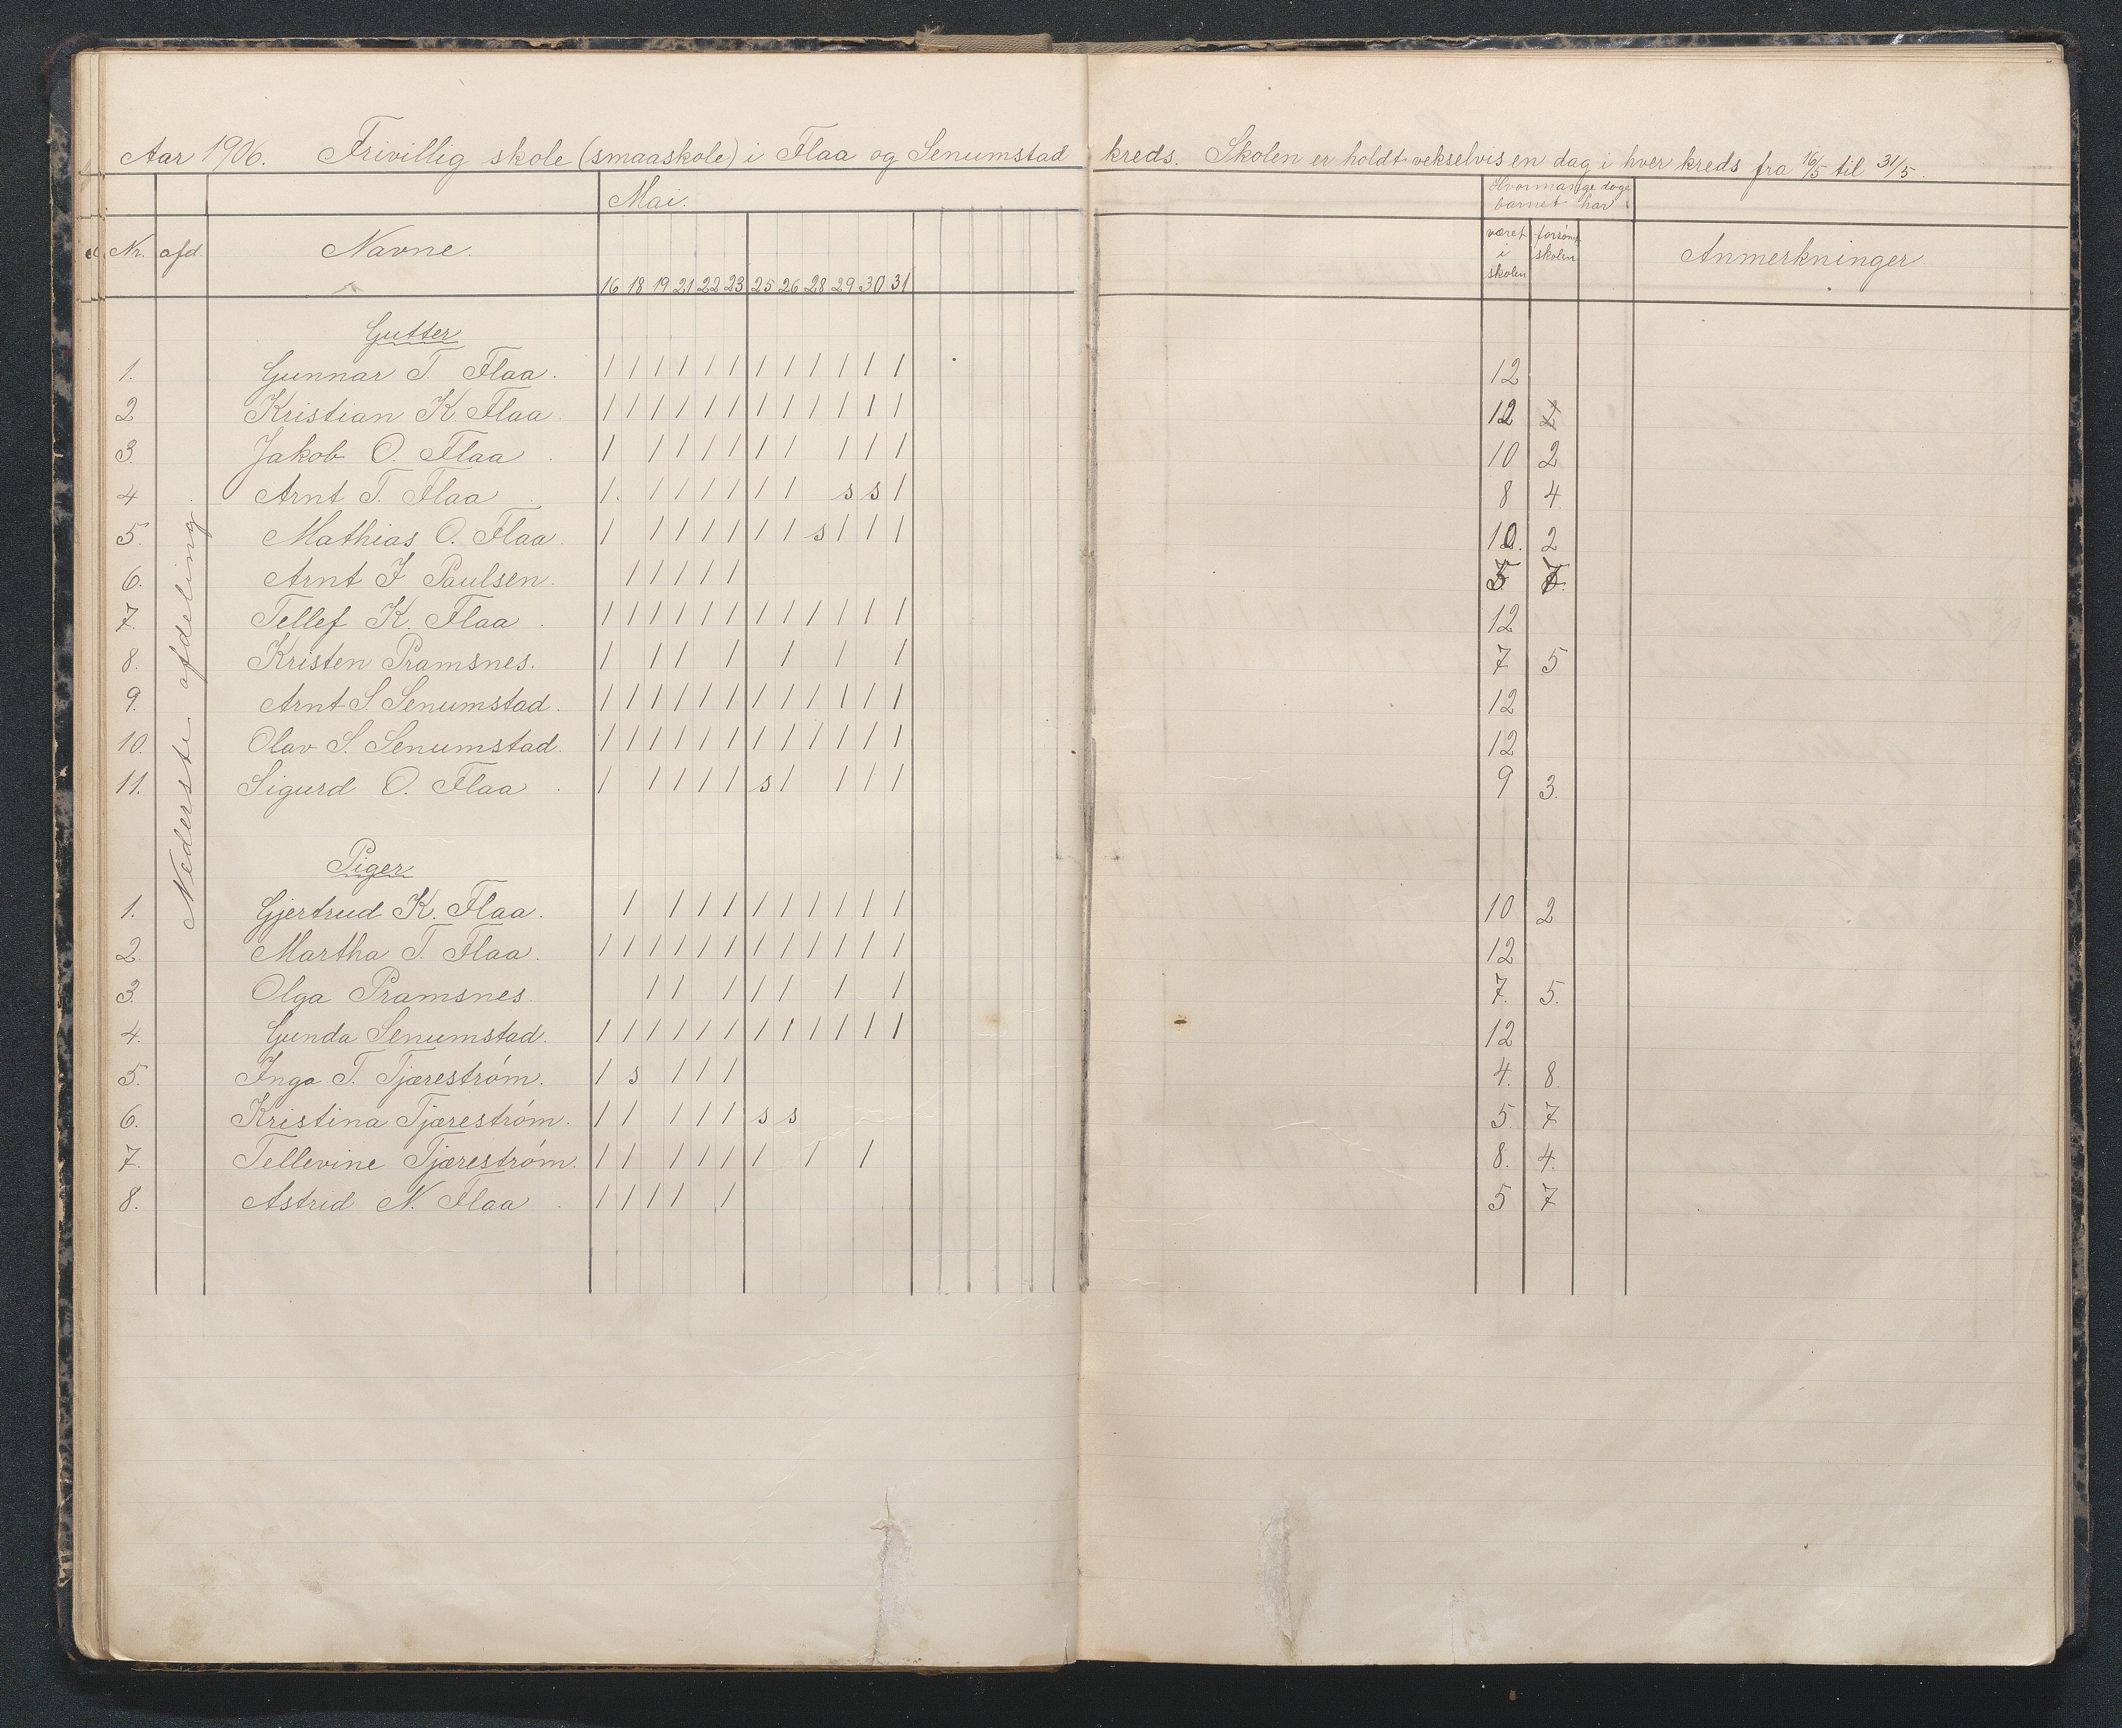 Aar 1906. Frivillig skole (smaaskole) i Flaa og Senumstad kreds. Skolen er holdt vekselvis en dag i hver kreds fra 16/5 til 31/5.
Mai. Hvormange dage barnet har
Nr. afd. Navne. været i skolen forsømt skolen Anmerkninger
16 18 19 21 22 23 25 26 28 29 30 31
Nederste afdeling
Gutter
1. Gunnar T. Flaa. / / / / / / / / / / / / 12
2 Kristian K. Flaa. / / / / / / / / / / / / 12 2
3. Jakob O. Flaa / / / / / / / / / / 10 2
4 Arnt T. Flaa /. / / / / / / s s / 8 4.
5. Mathias O. Flaa. / / / / / / / s / / / 10. 2
6. Arnt J Paulsen. / / / / / 5 7.
7. Tellef K. Flaa / / / / / / / / / / / / 12
8. Kristen Pramsnes. / / / / / / / 7 5
9. Arnt S. Senumstad. / / / / / / / / / / / / 12
10. Olav S. Senumstad. / / / / / / / / / / / / 12
11. Sigurd O. Flaa / / / / / s / / / / 9 3.
Piger
1. Gjertrud K. Flaa. / / / / / / / / / / 10 2
2. Martha T. Flaa. / / / / / / / / / / / / 12
3. Olga Pramsnes. / / / / / / / 7. 5.
4. Gunda Senumstad. / / / / / / / / / / / / 12
5. Inga T. Tjærestrøm. / s / / / 4. 8.
6. Kristina Tjærestrøm. / / / / / s s 5. 7
7. Tellevine Tjærestrøm. / / / / / / / / 8. 4.
8. Astrid N. Flaa / / / / / 5 7